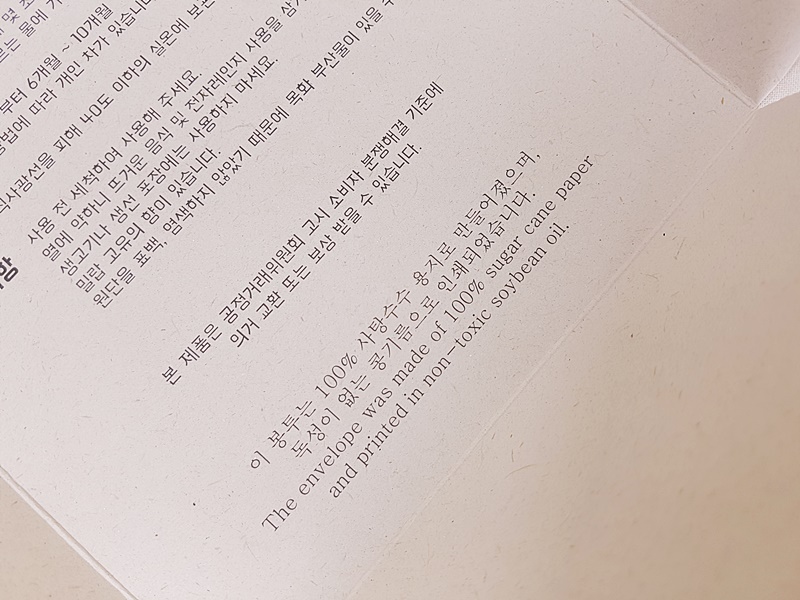 몇
는 물에
부터 6개월 ~ 10개월
방법에 따라 개인 차가 있습니다
직사광선을 피해 40도 이하의 실온에 보관
사용 전 세척하여 사용해 주세요.
열에 약하니 뜨거운 음식 및 전자레인지 사용을 삼가
생고기나 생선 포장에는 사용하지 마세요.
밀랍 고유의 향이 있습니다.
원단을 표백, 염색하지 않았기 때문에 목화 부산물이 있을 수
본 제품은 공정거래위원회 고시 소비자 분쟁해결 기준에
의거 교환 또는 보상 받을 수 있습니다.
이 봉투는 100% 사탕수수 용지로 만들어졌으며,
독성이 없는 콩기름으로 인쇄되었습니다.
The envelope was made of 100% sugar cane paper
and printed in non-toxic soybean oil.